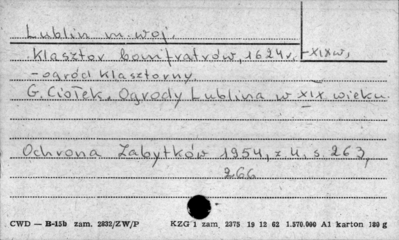 Lublin m. woj.
Klasztor bonifratrów, 1624 r. - XIX w,
- ogród klasztorny.
G. Ciołek, Ogrody Lublina w XIX wieku.
Ochrona Zabytków 1954, z 4. s. 263,
266
CWD — B-15b zam. 2832/ZW/P KZG 1 zam. 2375 19 12 62 1.570.000 A1 karton 180 g